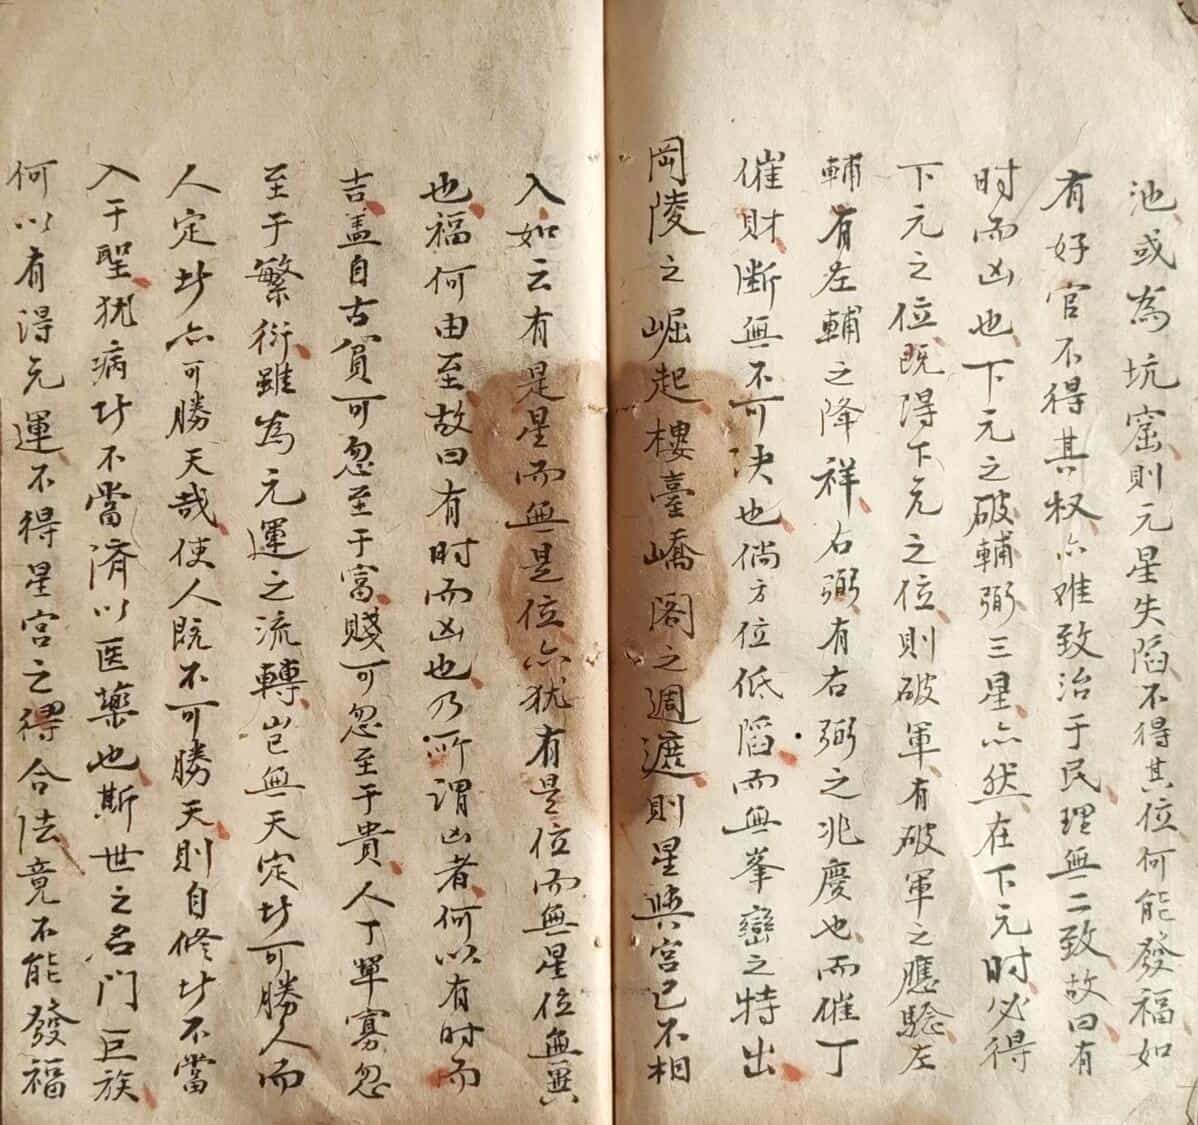 池或為坑窟則元星失陷不得其位何能發福如
有好官不得其权亦难致治于民理無二致故曰有
时而凶也下元之破輔弼三星亦然在下元时必得
下元之位既得下元之位則破軍有破軍之應驗左
輔有左輔之降祥右弼有右弼之兆慶也而催丁
催財断無不可决也倘方位低陷而無峯巒之特出
岡陵之崛起樓臺嶠阁之週遮則星與宫已不相
入如云有是星而無是位亦犹有是位而無星位無異
也福何由至故曰有时而凶也乃所谓凶者何以有时而
吉盖自古貧可忽至于富賤可忽至于貴人丁单寡忽
至于繁衍雖為元運之流轉岂無天定者可勝人而
人定者亦可勝天哉使人既不可勝天則自修者不當
入于聖犹病者不當济以医藥也斯世之名門巨族
何以有得元運不得星宫之得合法竟不能發福